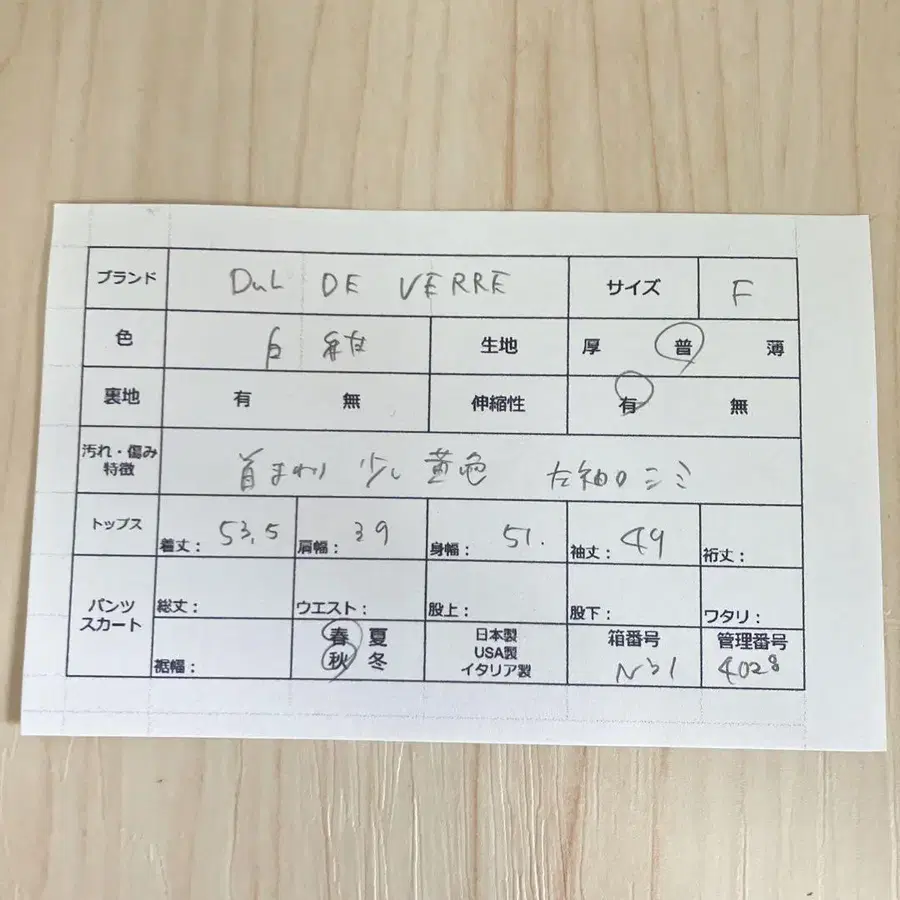 ブランド DuL DE VERRE サイズ F
色 白 生地 厚 普 薄
裏地 有 無 伸縮性 有 無
汚れ・傷み 特徴 首まわり 少し黄色 左袖口シミ
トップス 着丈: 53.5 肩幅: 39 身幅: 51. 袖丈: 49 裄丈:
パンツ スカート 総丈: ウエスト: 股上: 股下: ワタリ:
裾幅: 春 夏 秋 冬 日本製 USA製 イタリア製 箱番号 管理番号 4028